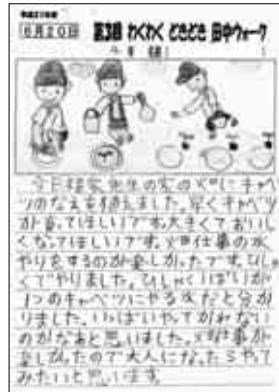 平成21年度
6月20日 第3回 わくわく どきどき 田中ウォーク
年 組
今日 先生の家の畑にキャベ
ツのなえを植えました。早くキャベツ
が育ってほしいです。大きくておいし
くなってほしいです。畑仕事の水
やりをするのが楽しかったです。ひしゃ
くでやりました。ひしゃくいっぱいが
1つのキャベツにやる水だと分か
りました。いっぱいやってかれない
のかなあと思いました。畑仕事が
楽しかったので大人になったらやって
みたいと思います。